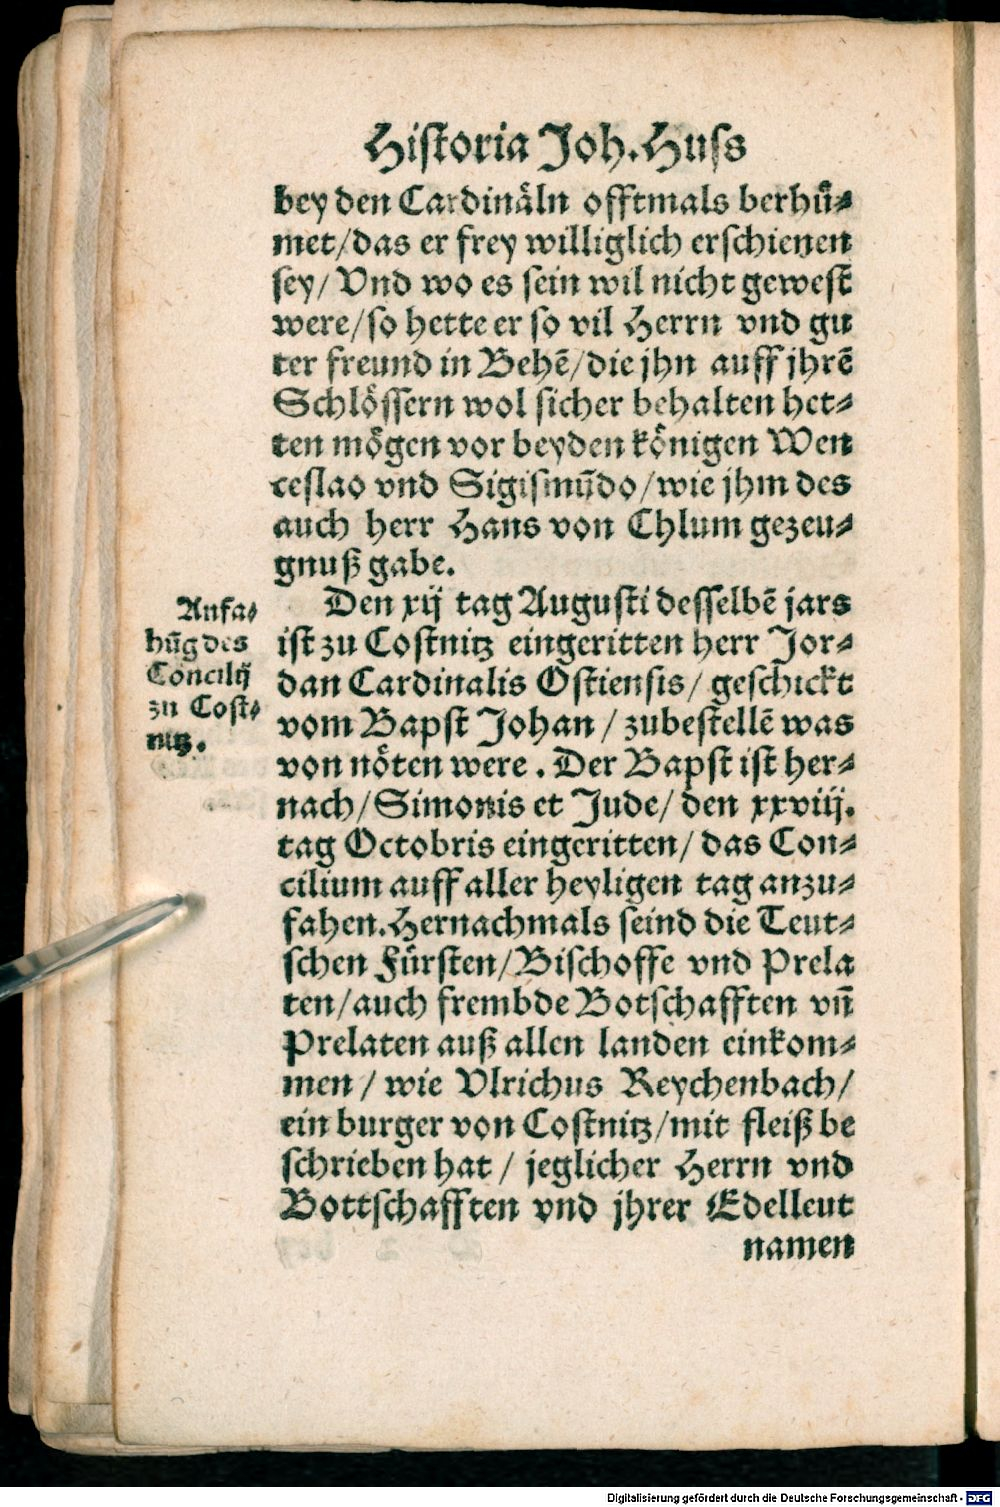 Historia Joh. Huss
bey den Cardinåln offtmals berhů⸗
met/das er frey williglich erschienen
sey/ Vnd wo es sein wil nicht gewest
were/so hette er so vil Herrn vnd gu
ter freund in Behē/die jhn auff jhrē
Schlössern wol sicher behalten het⸗
ten mögen vor beyden königen Wen
ceslao vnd Sigismūdo/wie jhm des
auch herr Hans von Chlum gezeu⸗
gnuß gabe.
Den xij tag Augusti desselbē jars
ist zu Costnitz eingeritten herr Jor⸗
dan Cardinalis Ostiensis/ geschickt
vom Bapst Johan / zubestellē was
von nöten were. Der Bapst ist her⸗
nach/Simonis et Jude/ den xxviij.
tag Octobris eingeritten/ das Con⸗
cilium auff aller heyligen tag anzu⸗
fahen.Hernachmals seind die Teut⸗
schen Fürsten/Bischoffe vnd Prela
ten/auch frembde Botschafften vñ
Prelaten auß allen landen einkom⸗
men / wie Vlrichus Reychenbach/
ein burger von Costnitz/mit fleiß be
schrieben hat / jeglicher Herrn vnd
Bottschafften vnd jhrer Edelleut
namen
Anfa⸗
hūg des
Concilij
zu Cost⸗
nitz.
Digitalisierung gefördert durch die Deutsche Forschungsgemeinschaft - DFG